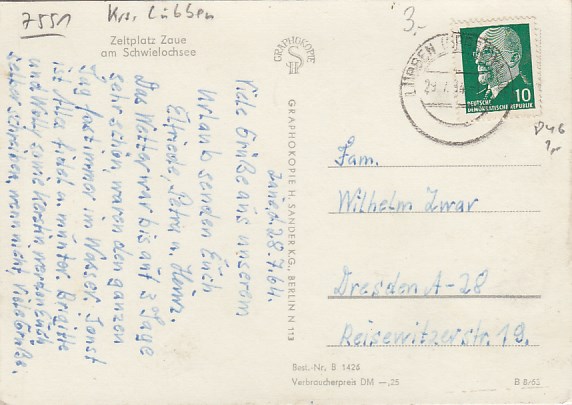 7551 Krs. Lübben
Zeltplatz Zaue
am Schwielochsee
Zaue, d. 28.7.64
Viele Grüße aus unserem
Urlaub senden Euch
Elfriede, Petra u. Heinz.
Das Wetter war bis auf 3 Tage
sehr schön, waren den ganzen
Tag fast immer im Wasser. Sonst
ist alles frisch u. munter. Brigitte
und Wolf sowie Kerstin werden Euch
selber schreiben, wenn nicht, viele Grüße.
GRAPHOKOPIE
GRAPHOKOPIE H. SANDER K.G., BERLIN N 113
3,-
LÜBBEN
DEUTSCHE
DEMOKRATISCHE REPUBLIK
10
Fam.
Wilhelm Zwar
Dresden A-28
Reisewitzerstr. 19.
Best.-Nr. B 1426
Verbraucherpreis DM —,25
B 8/63